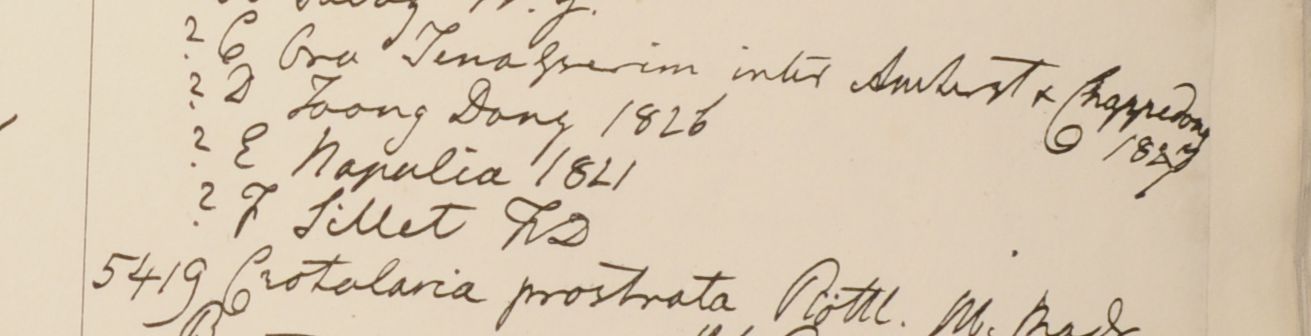 ? C Ora Tenasserim inter Amherst & Chappedong 1827
? D Toong Dong 1826
? E Napalia 1821
? F Sillet FD
5419 Crotalaria prostrata Rottl.